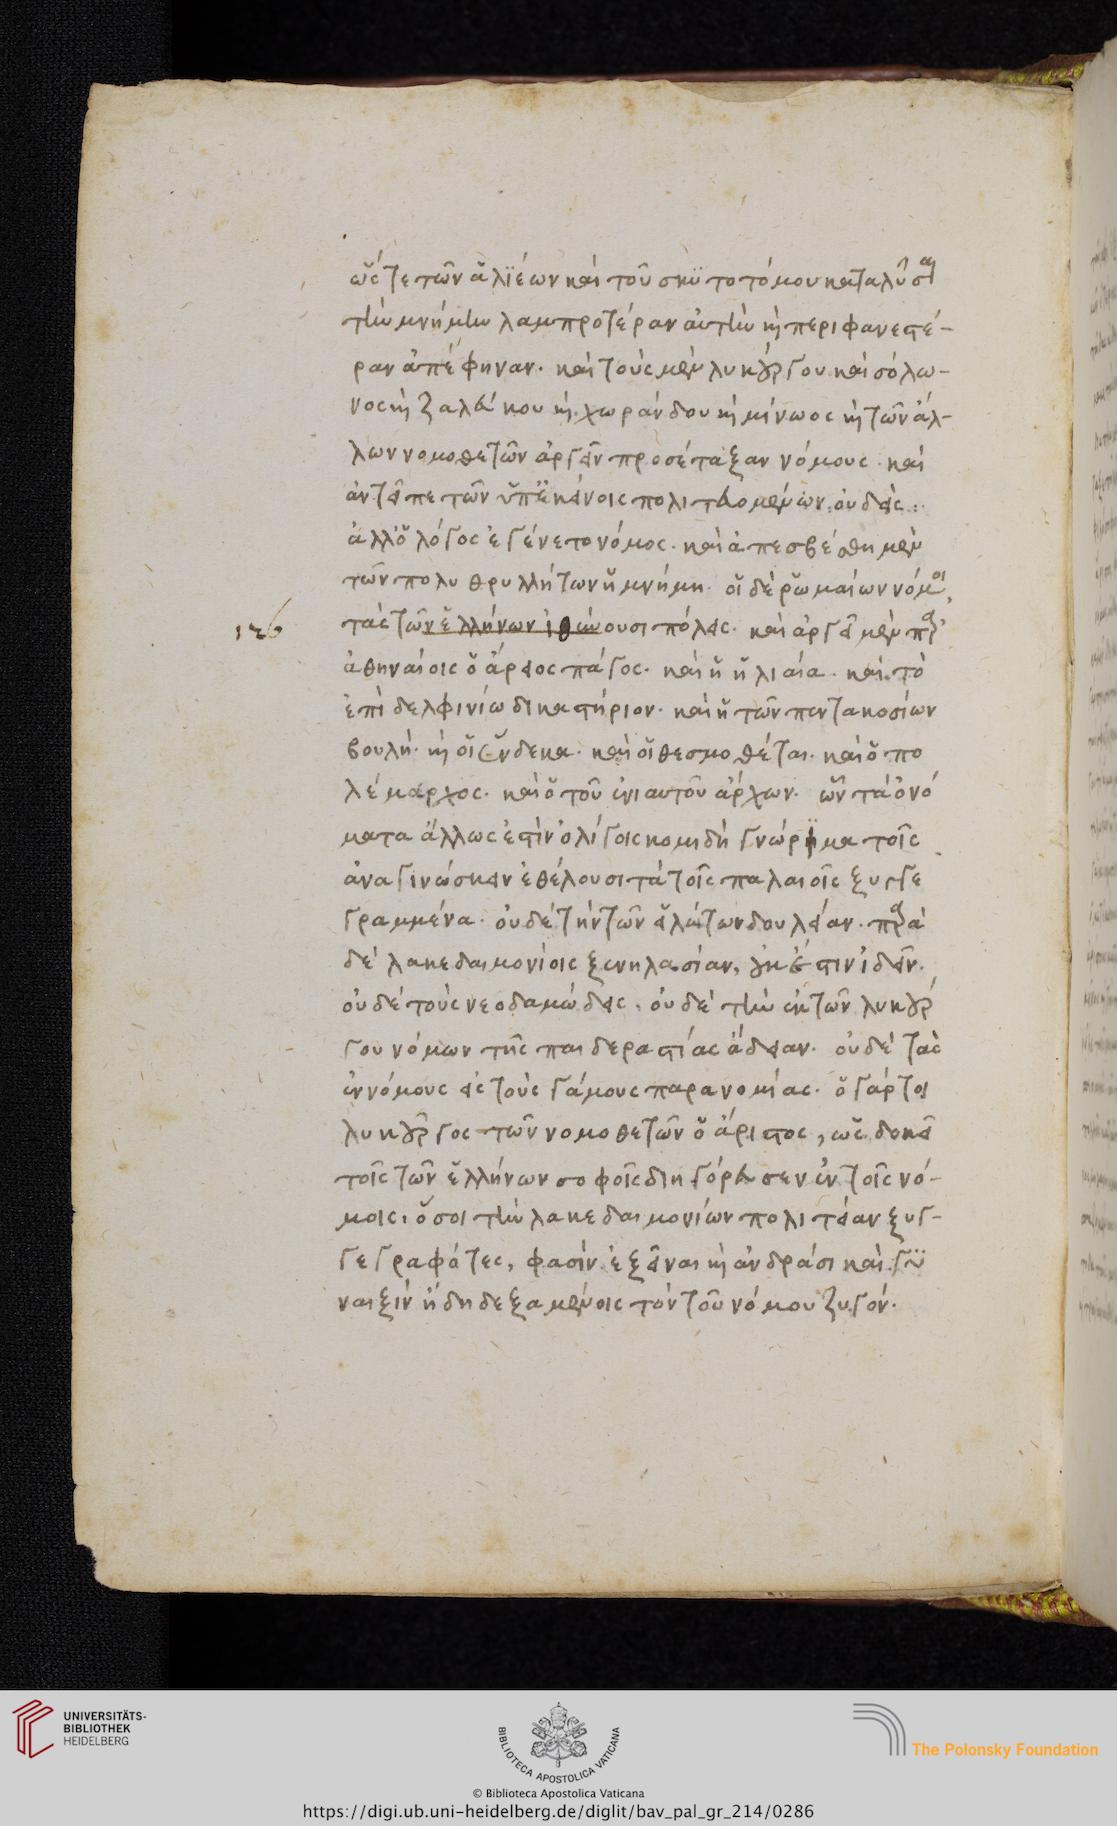 ὥστε τῶν ἁλϊέων καὶ τοῦ σκυτοτόμου καταλῦσαι
τὴν μνήμην λαμπροτέραν αὐτὴν καὶ περιφανεστέ-
ραν ἀπέφηναν. καὶ τοὺς μὲν λυκούργου καὶ σόλω-
νος καὶ ζαλεύκου καὶ χωράνδου καὶ μίνωος καὶ τῶν ἄλ-
λων νομοθετῶν ἀργεῖν προσέταξαν νόμους. καὶ
ἀντεῖπε τῶν ὑπ' ἐκείνοις πολιτευομένων οὐδείς.
ἀλλ' ὁ λόγος ἐγένετο νόμος. καὶ ἀπεσβέσθη μὲν
τῶν πολυθρυλλήτων ἡ μνήμη. οἱ δὲ ῥωμαίων νόμοι,
τὰς τῶν ἑλλήνων ἰθύνουσι πόλεις. καὶ ἀργεῖ μὲν παρ'
ἀθηναίοις ὁ ἄρειος πάγος. καὶ ἡ ἡλιαία. καὶ τὸ
ἐπὶ δελφινίω δικαστήριον. καὶ ἡ τῶν πεντακοσίων
βουλή. καὶ οἱ ἕνδεκα. καὶ οἱ θεσμοθέται. καὶ ὁ πο
λέμαρχος. καὶ ὁ τοῦ ἐνιαυτοῦ ἄρχων. ὧν τὰ ὀνό
ματα ἄλλως ἐστὶν ὀλίγοις κομιδῆ γνώριμα τοῖς
ἀναγινώσκειν ἐθέλουσι τὰ τοῖς παλαιοῖς ξυγγε
γραμμένα. οὐδὲ τὴν τῶν εἱλώτων δουλείαν. παρὰ
δὲ λακεδαιμονίοις ξενηλασίαν, οὐκ ἔστιν ἰδεῖν.
οὐδὲ τοὺς νεοδαμώδεις. οὐδὲ τὴν ἐκ τῶν λυκούρ
γου νόμων τῆς παιδεραστίας ἄδειαν. οὐδὲ τὰς
ἐννόμους εἰς τοὺς γάμους παρανομίας. ὁ γάρ τοι
λυκοῦργος τῶν νομοθετῶν ὁ ἄριστος, ὡς δοκεῖ
τοῖς τῶν ἑλλήνων σοφοῖς διηγόρευσεν ἐν τοῖς νό-
μοις. ὅσοι τὴν λακεδαιμονίων πολιτείαν ξυγ-
γεγραφότες, φασὶν ἐξεῖναι καὶ ἀνδράσι καὶ γυ
ναιξὶν ἤδη δεξαμένοις τὸν τοῦ νόμου ζυγόν.
126
UNIVERSITÄTS-
BIBLIOTHEK
HEIDELBERG
BIBLIOTECA APOSTOLICA VATICANA
The Polonsky Foundation
© Biblioteca Apostolica Vaticana
https://digi.ub.uni-heidelberg.de/diglit/bav_pal_gr_214/0286